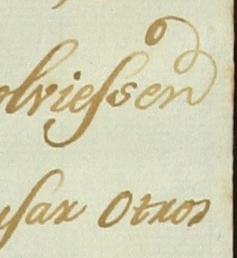 olviessen
usar Otros